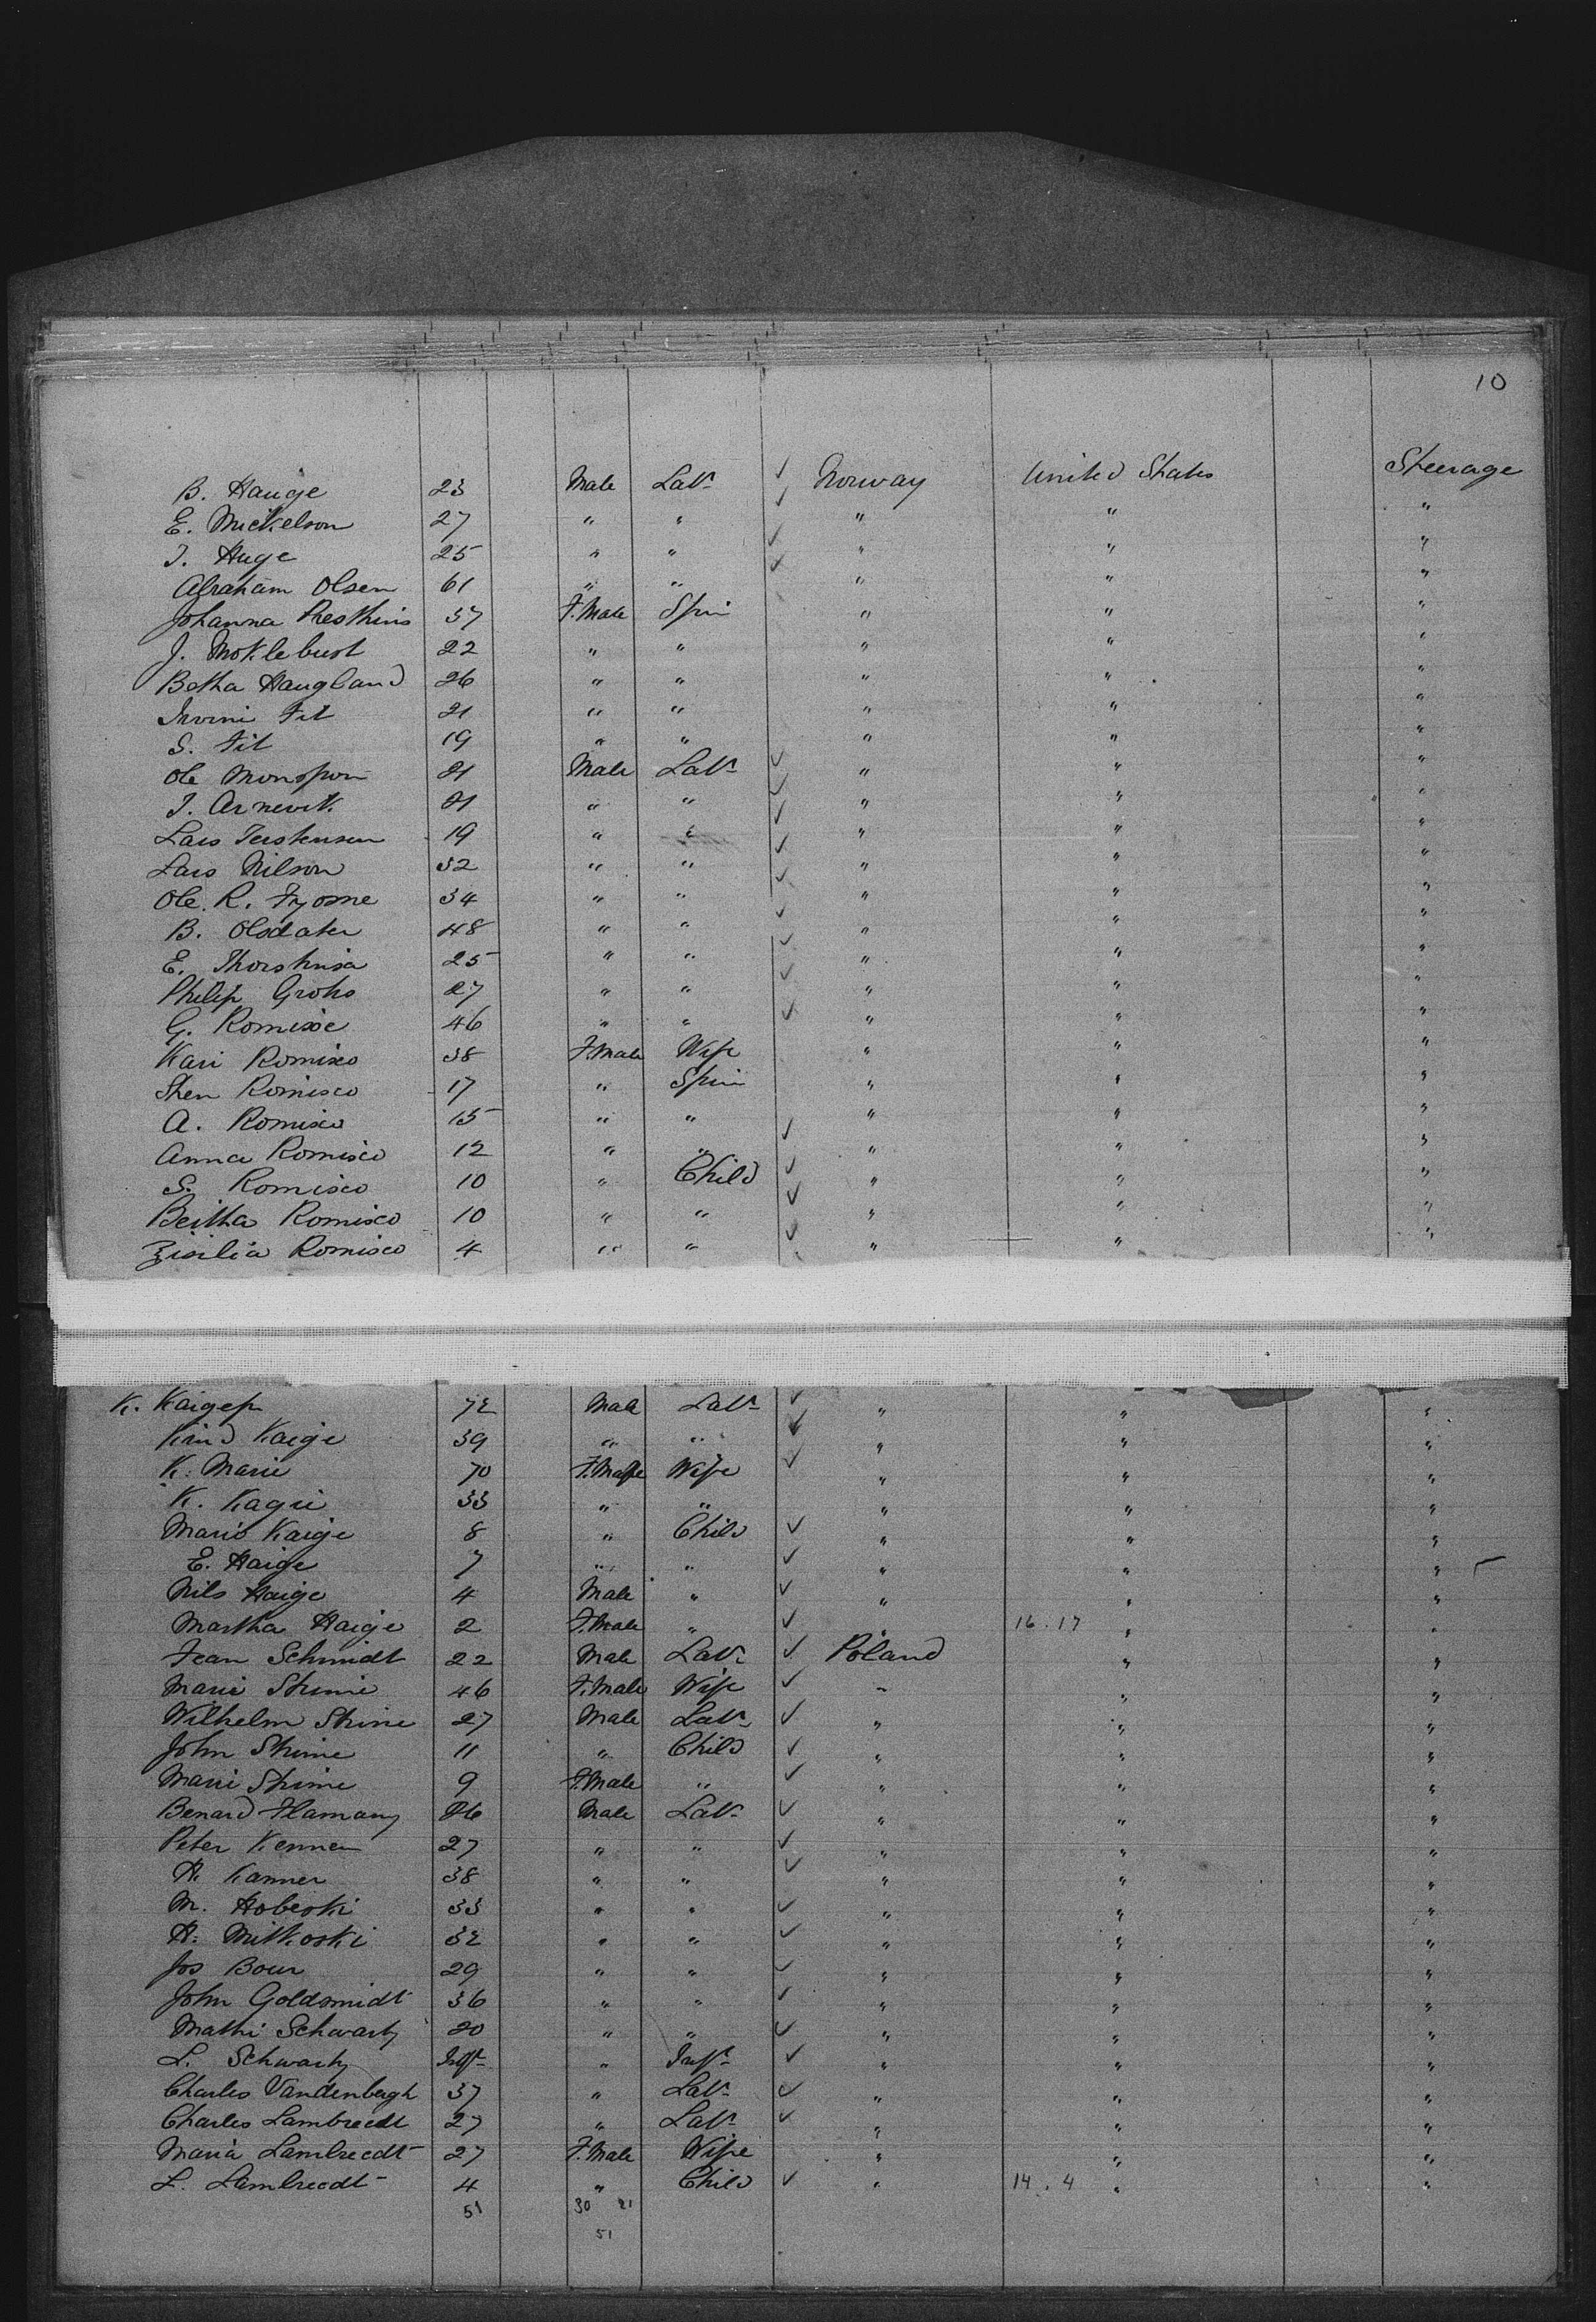 10
B. Hauge 23 Male Labr ✓ Norway United States Steerage
E. Mickelson 27 " " ✓ " " "
J. Huge 25 " " ✓ " " "
Abraham Olsen 61 " " ✓ " " "
Johanna 37 F.Male Spin " " "
J. Moklebust 22 " " " " "
Betha Haugland 26 " " " " "
Fit 21 " " " " "
S. Fit 19 " " " " "
Ole 21 Male Labr ✓ " " "
J. Arnevik 21 " " ✓ " " "
Lars Terstensen 19 " " ✓ " " "
Lars Nilson 32 " " ✓ " " "
Ole. R. Fyosne 34 " " ✓ " " "
B. Olsdater 48 " " ✓ " " "
E. 25 " " ✓ " " "
Philip Grohs 27 " " ✓ " " "
G. Romisce 46 " " ✓ " " "
Kari Romisco 38 F.Male Wife " " "
Sten Romisco 17 " Spin " " "
A. Romisco 15 " " " " "
Anna Romisco 12 " " ✓ " " "
S. Romisco 10 " Child ✓ " " "
Beitha Romisco 10 " " ✓ " " "
Zisilia Romisco 4 " " ✓ " " "
K. Kaigep 72 Male Labr ✓ " " "
Kind Kaige 39 " " ✓ " " "
K. Marie 70 F.Male Wife ✓ " " "
K. Kagie 33 " " " " "
Marie Kaige 8 " Child ✓ " " "
E. Haige 7 " " ✓ " " "
Nils Haige 4 Male " ✓ " " "
Martha Haige 2 F.Male " ✓ " 16.17 " "
Jean Schmidt 22 Male Labr ✓ Poland " "
Marie Shime 46 F.Male Wife ✓ " " "
Wilhelm Shime 27 Male Labr ✓ " " "
John Shime 11 " Child ✓ " " "
Marie Shime 9 F.Male " ✓ " " "
Benard Flamany 26 Male Labr ✓ " " "
Peter Kenner 27 " " ✓ " " "
H. Kanner 38 " " ✓ " " "
M. Hobeski 33 " " ✓ " " "
H. Mitkoski 32 " " ✓ " " "
Jos Bour 29 " " ✓ " " "
John Goldsmidt 36 " " ✓ " " "
Mathi Schwartz 20 " " ✓ " " "
L. Schwartz Inft " Inft ✓ " " "
Charles Vandenbergh 37 " Labr ✓ " " "
Charles Lambrecdt 27 " Labr ✓ " " "
Maria Lambrecdt 27 F.Male Wife " " "
L. Lambrecdt 4 " Child ✓ " 14.4 " "
51 30 21
51